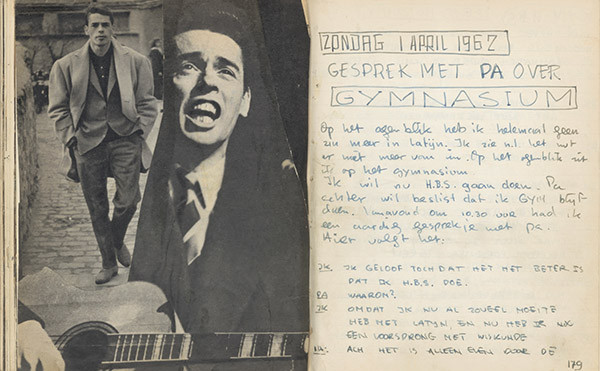 ZONDAG 1 APRIL 1962
GESPREK MET PA OVER
GYMNASIUM
Op het ogenblik heb ik helemaal geen
zin meer in Latijn. Ik zie n.l. het nut
er niet meer van in. Op het ogenblik zit
ik op het gymnasium
Ik wil nu H.B.S. gaan doen. Pa
echter wil beslist dat ik GYM blijf
doen. Vanavond om 10.30 uur had ik
een aardig gesprekje met pa.
Hier volgt het:
IK. IK GELOOF TOCH DAT HET HET BETER IS
DAT IK H.B.S. DOE.
PA WAAROM?
IK OMDAT IK NU AL ZOVEEL MOEITE
HEB MET LATIJN, EN NU HEB IK NOG
EEN VOORSPRONG MET WISKUNDE
ACH HET IS ALLEEN EVEN DOOR DE
179